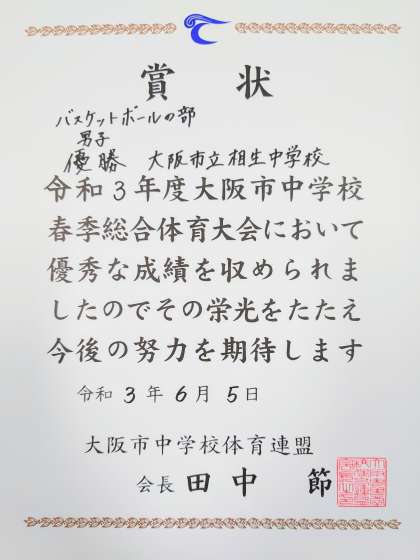 賞状
バスケットボールの部
男子
優勝 大阪市立相生中学校
令和3年度大阪市中学校
春季総合体育大会において
優秀な成績を収められま
したのでその栄光をたたえ
今後の努力を期待します
令和 3 年 6 月 5 日
大阪市中学校体育連盟
会長 田中 節